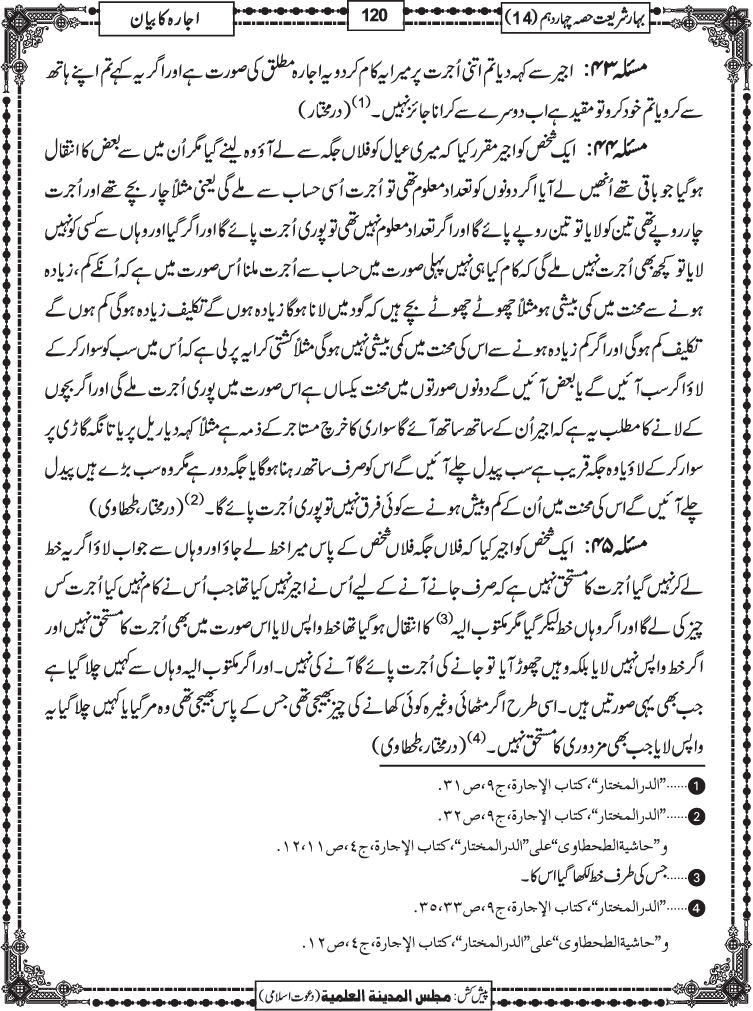 بہار شریعت حصہ چہاردہم (14)
120
اجارہ کا بیان
مسئلہ ۴۳: اجیر سے کہہ دیا تم اتنی اُجرت پر میرا یہ کام کر دو یہ اجارہ مطلق کی صورت ہے اور اگر یہ کہے تم اپنے ہاتھ
سے کرو یا تم خود کرو تو مقید ہے اب دوسرے سے کرانا جائز نہیں۔(1) (درمختار)
مسئلہ ۴۴: ایک شخص کو اجیر مقرر کیا کہ میری عیال کو فلاں جگہ سے لے آؤ وہ لینے گیا مگر اُن میں سے بعض کا انتقال
ہوگیا جو باقی تھے اُنھیں لے آیا اگر دونوں کو تعداد معلوم تھی تو اُجرت اُسی حساب سے ملے گی یعنی مثلاً چار بچے تھے اور اُجرت
چار روپے تھی تین کو لایا تو تین روپے پائے گا اور اگر تعداد معلوم نہیں تھی تو پوری اُجرت پائے گا اور اگر گیا اور وہاں سے کسی کو نہیں
لایا تو کچھ بھی اُجرت نہیں ملے گی کہ کام کیا ہی نہیں پہلی صورت میں حساب سے اُجرت ملنا اُس صورت میں ہے کہ اُنکے کم، زیادہ
ہونے سے محنت میں کمی بیشی ہو مثلاً چھوٹے چھوٹے بچے ہیں کہ گود میں لانا ہوگا زیادہ ہوں گے تکلیف زیادہ ہوگی کم ہوں گے
تکلیف کم ہوگی اور اگر کم زیادہ ہونے سے اس کی محنت میں کمی بیشی نہیں ہوگی مثلاً کشتی کرایہ پر لی ہے کہ اُس میں سب کو سوار کرکے
لاؤ اگر سب آئیں گے یا بعض آئیں گے دونوں صورتوں میں محنت یکساں ہے اس صورت میں پوری اُجرت ملے گی اور اگر بچوں
کے لانے کا مطلب یہ ہے کہ اجیر اُن کے ساتھ ساتھ آئے گا سواری کا خرچ مستاجر کے ذمہ ہے مثلاً کہہ دیا ریل پر یا تانگہ گاڑی پر
سوار کرکے لاؤ یا وہ جگہ قریب ہے سب پیدل چلے آئیں گے اس کو صرف ساتھ رہنا ہوگا یا جگہ دور ہے مگر وہ سب بڑے ہیں پیدل
چلے آئیں گے اس کی محنت میں اُن کے کم و بیش ہونے سے کوئی فرق نہیں تو پوری اُجرت پائے گا۔(2) (درمختار، طحطاوی)
مسئلہ ۴۵: ایک شخص کو اجیر کیا کہ فلاں جگہ فلاں شخص کے پاس میرا خط لے جاؤ اور وہاں سے جواب لاؤ اگر یہ خط
لے کر نہیں گیا اُجرت کا مستحق نہیں ہے کہ صرف جانے آنے کے لیے اُس نے اجیر نہیں کیا تھا جب اُس نے کام نہیں کیا اُجرت کس
چیز کی لے گا اور اگر وہاں خط لیکر گیا مگر مکتوب الیہ(3) کا انتقال ہوگیا تھا خط واپس لایا اس صورت میں بھی اُجرت کا مستحق نہیں اور
اگر خط واپس نہیں لایا بلکہ وہیں چھوڑ آیا تو جانے کی اُجرت پائے گا آنے کی نہیں۔ اور اگر مکتوب الیہ وہاں سے کہیں چلا گیا ہے
جب بھی یہی صورتیں ہیں۔ اسی طرح اگر مٹھائی وغیرہ کوئی کھانے کی چیز بھیجی تھی جس کے پاس بھیجی تھی وہ مر گیا یا کہیں چلا گیا یہ
واپس لایا جب بھی مزدوری کا مستحق نہیں۔(4) (درمختار، طحطاوی)
1 ......"الدرالمختار"، کتاب الإجارة، ج۹، ص۳۱.
2 ......"الدرالمختار"، کتاب الإجارة، ج۹، ص۳۲.
و"حاشیة الطحطاوی" علی "الدرالمختار"، کتاب الإجارة، ج٤، ص۱۱، ۱۲.
3 ......جس کی طرف خط لکھا گیا اس کا۔
4 ......"الدرالمختار"، کتاب الإجارة، ج۹، ص۳۳، ۳۵.
و"حاشیة الطحطاوی" علی "الدرالمختار"، کتاب الإجارة، ج٤، ص۱۲.
پیش کش: مجلس المدینة العلمیة (دعوت اسلامی)